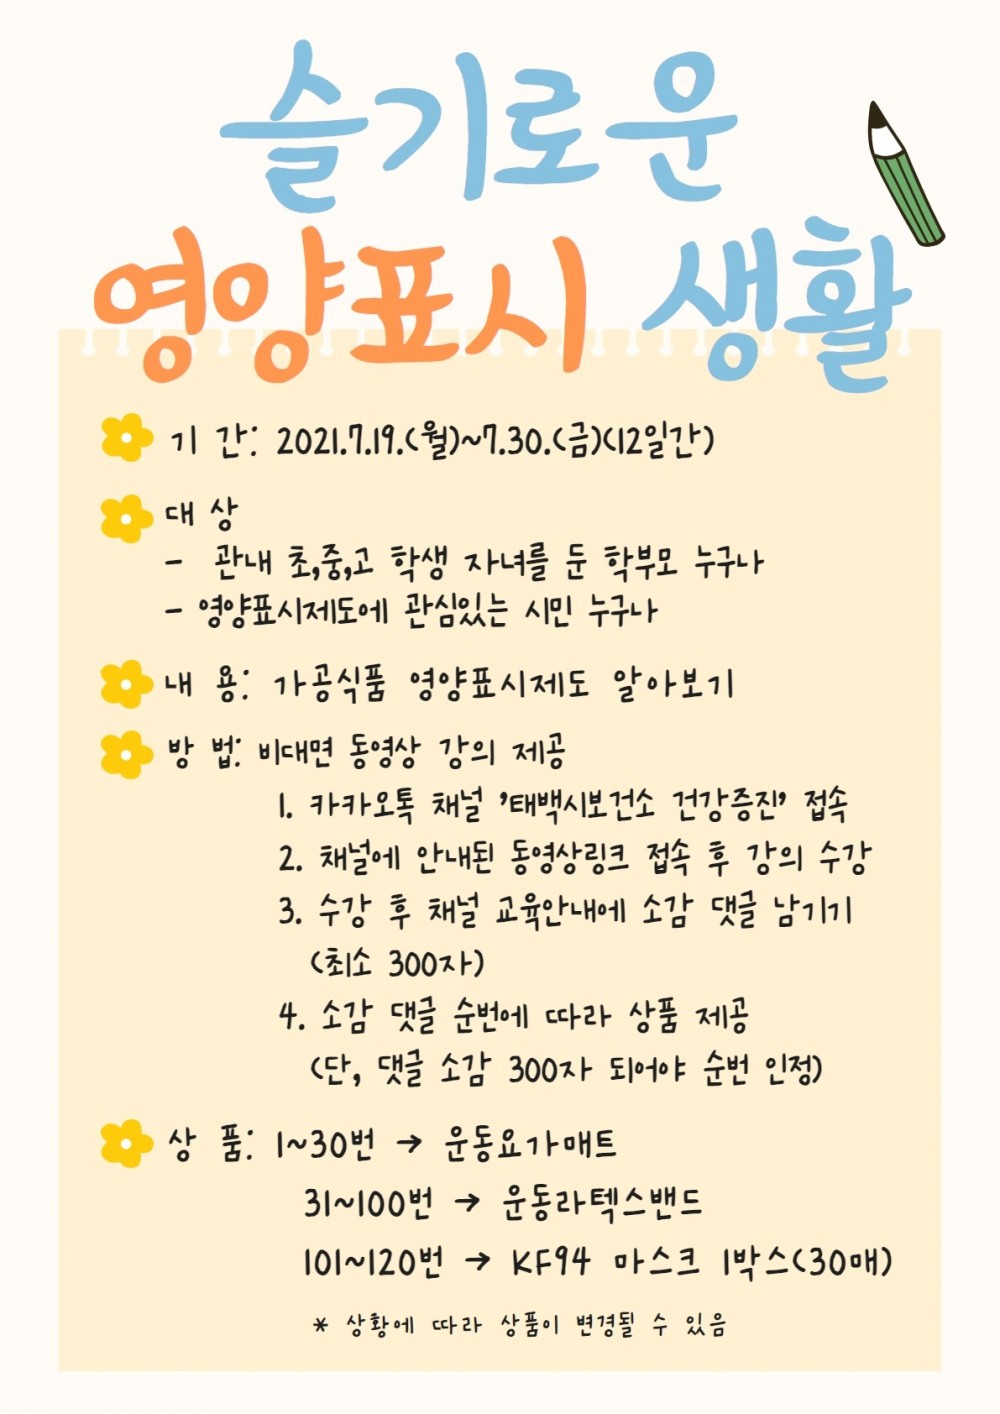 슬기로운
영양표시 생활
기 간: 2021.7.19.(월)~7.30.(금)(12일간)
대 상
- 관내 초,중,고 학생 자녀를 둔 학부모 누구나
- 영양표시제도에 관심있는 시민 누구나
내 용: 가공식품 영양표시제도 알아보기
방 법: 비대면 동영상 강의 제공
1. 카카오톡 채널 '태백시보건소 건강증진' 접속
2. 채널에 안내된 동영상링크 접속 후 강의 수강
3. 수강 후 채널 교육안내에 소감 댓글 남기기
(최소 300자)
4. 소감 댓글 순번에 따라 상품 제공
(단, 댓글 소감 300자 되어야 순번 인정)
상 품: 1~30번 → 운동요가매트
31~100번 → 운동라텍스밴드
101~120번 → KF94 마스크 1박스(30매)
* 상황에 따라 상품이 변경될 수 있음